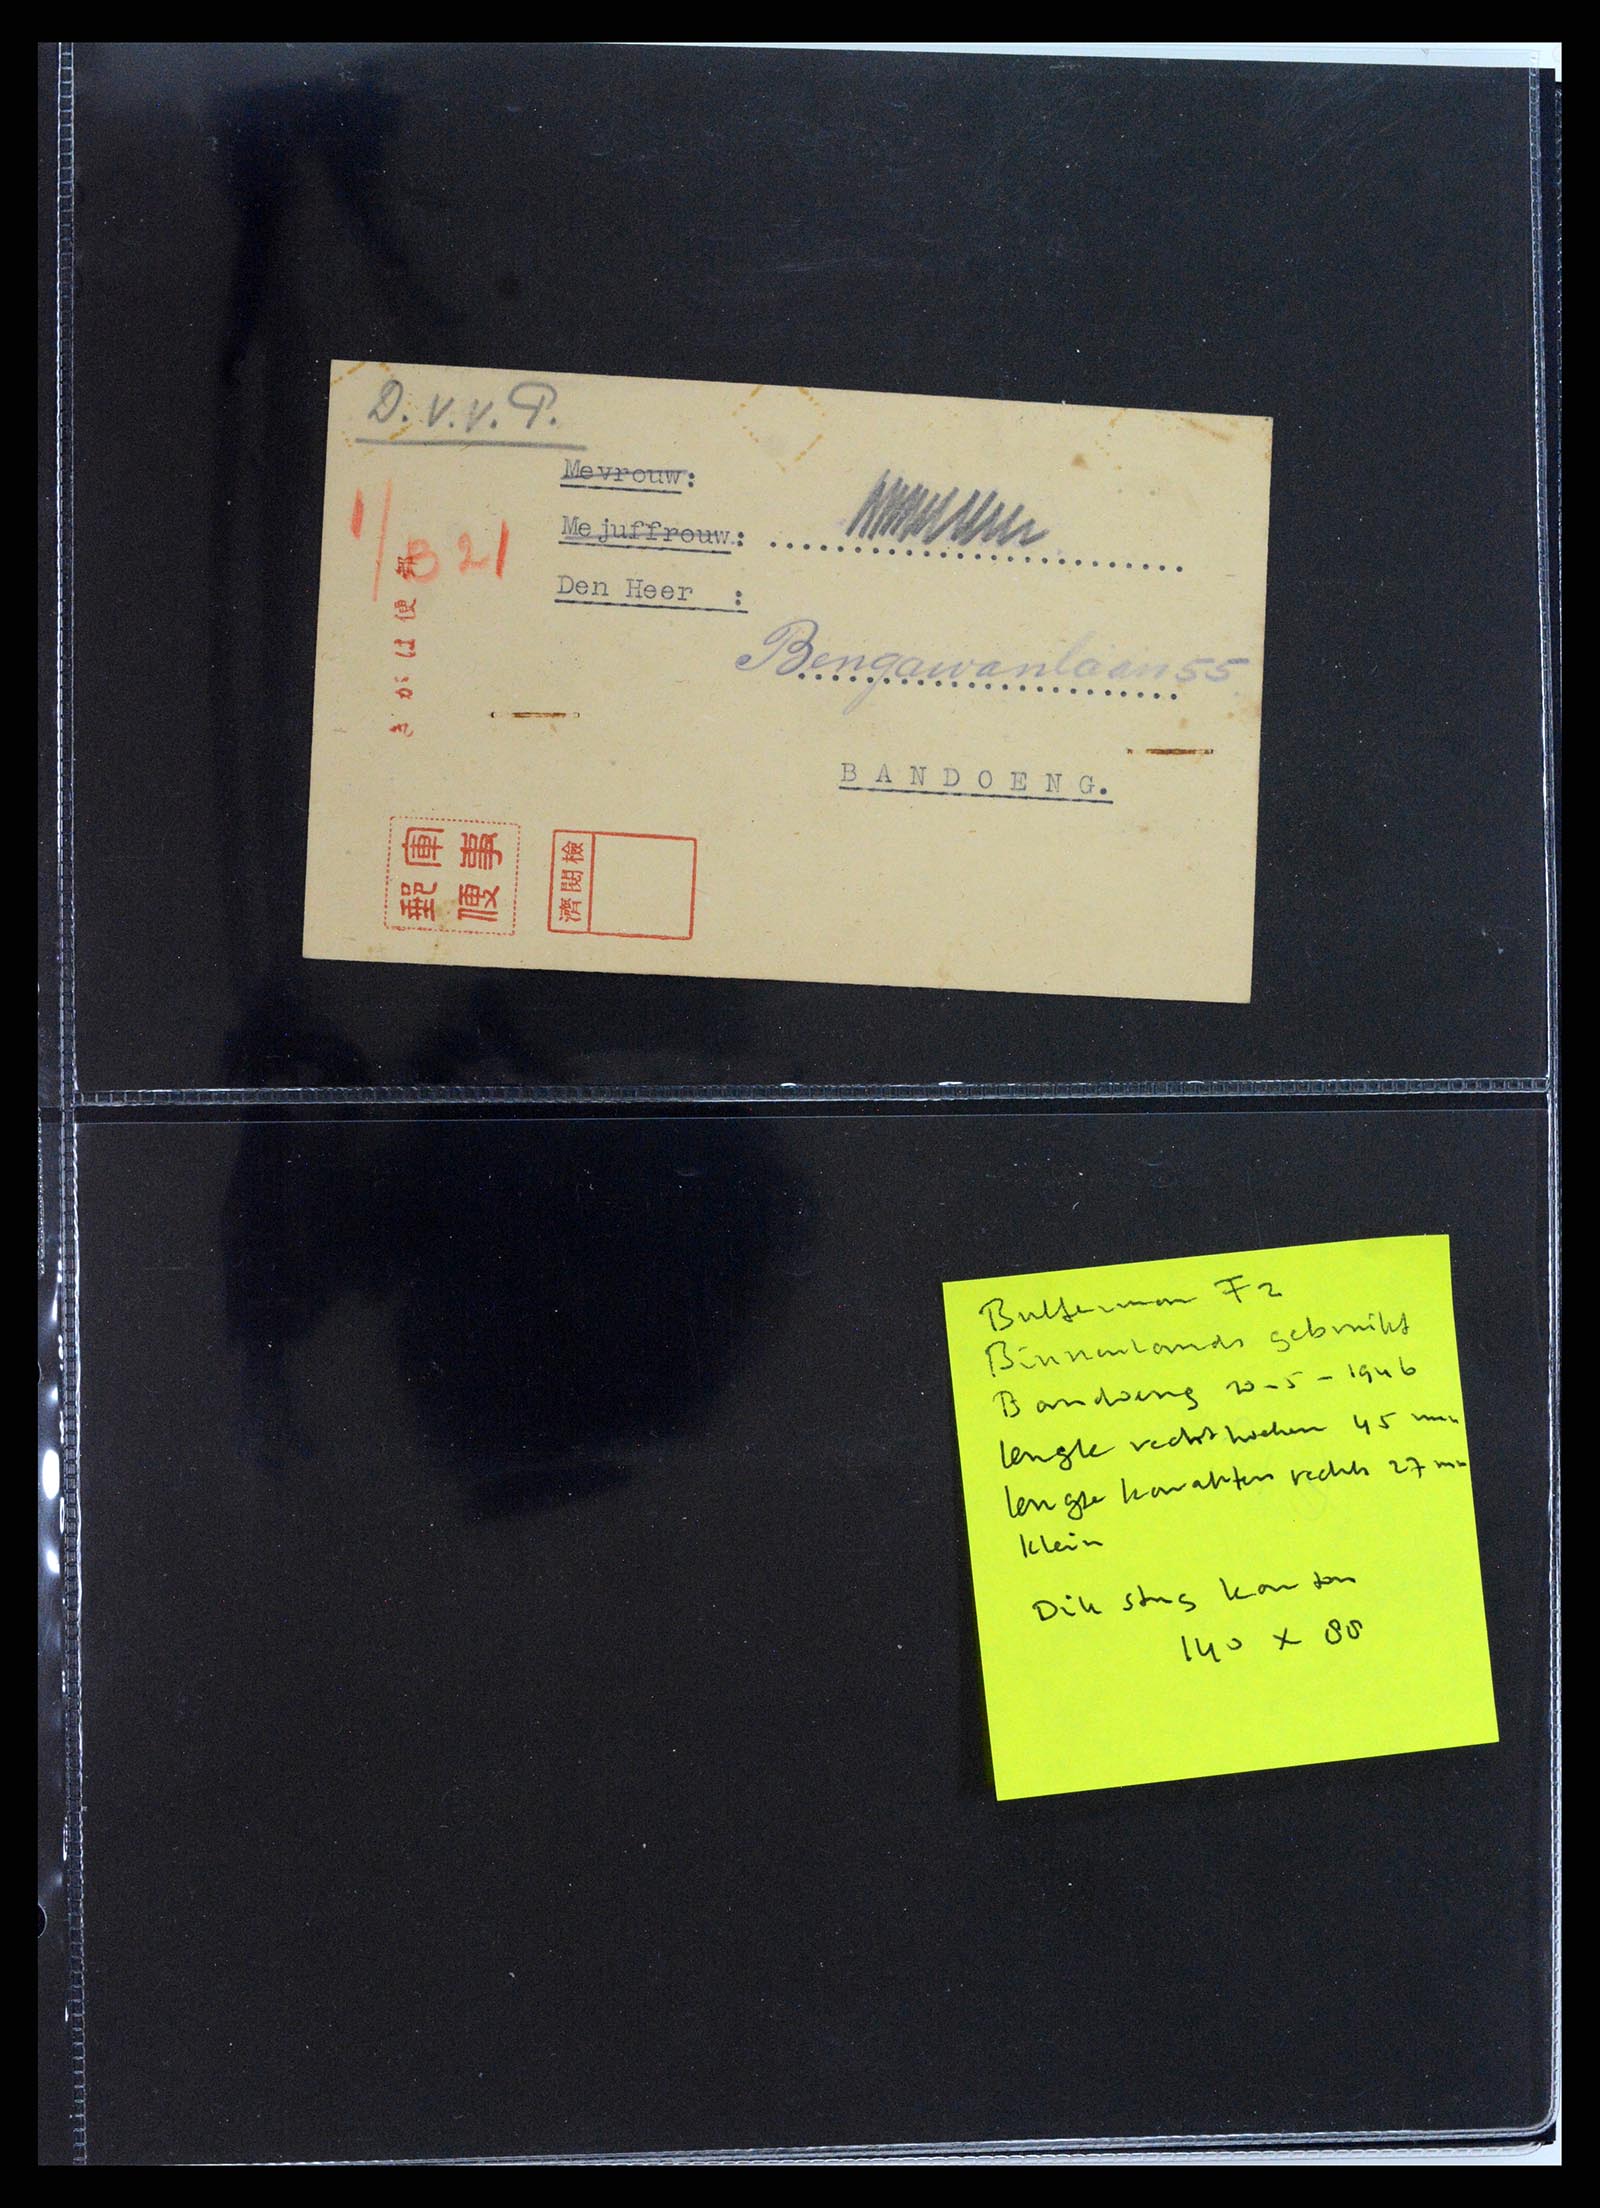 D. v. v. P.
Mevrouw:
Mejuffrouw:
Den Heer :
1/821
郵便はがき
Bengawanlaan 55
BANDOENG.
軍事
郵便
檢閲濟
Bulterman F2
Binnenlands gebruikt
Bandoeng 20-5-1946
lengte rechthoeken 45 mm
lengte karakters rechts 27 mm
klein
Dik stug karton
140 x 88